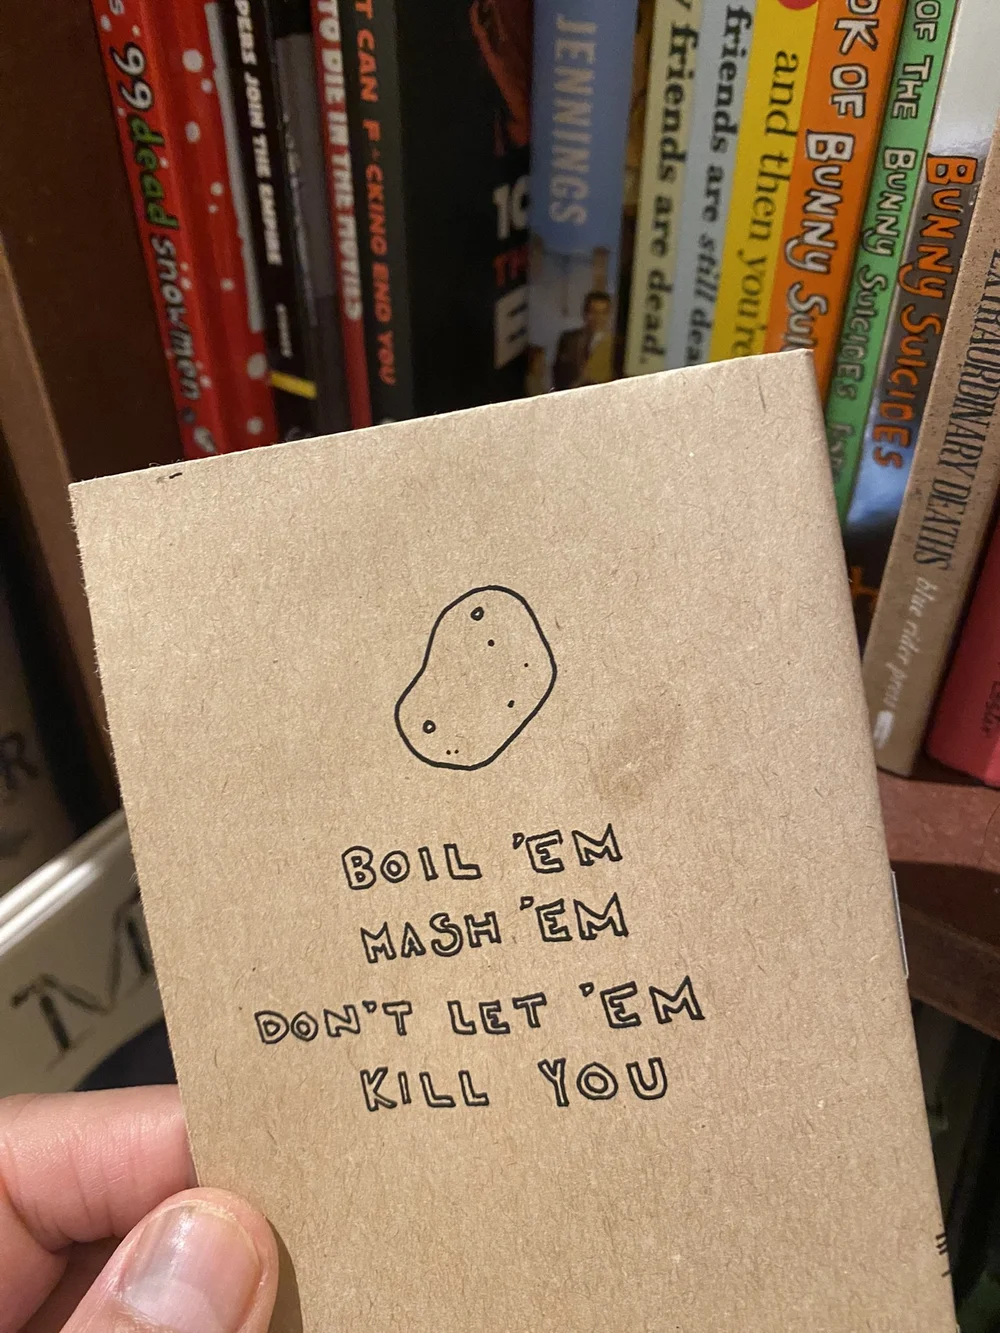 99 dead snowmen
PERS JOIN THE EMPIRE
TO DIE IN THE MOVIES
T CAN F**CKING END YOU
10
TH
E
JENNINGS
friends are dead.
friends are still dea
and then you're
OK OF BUNNY SUI
OF THE BUNNY SUICIDES
BUNNY SUICIDES
EXTRAORDINARY DEATHS
blue rider press
R
M
BOIL 'EM
MASH 'EM
DON'T LET 'EM
KILL YOU